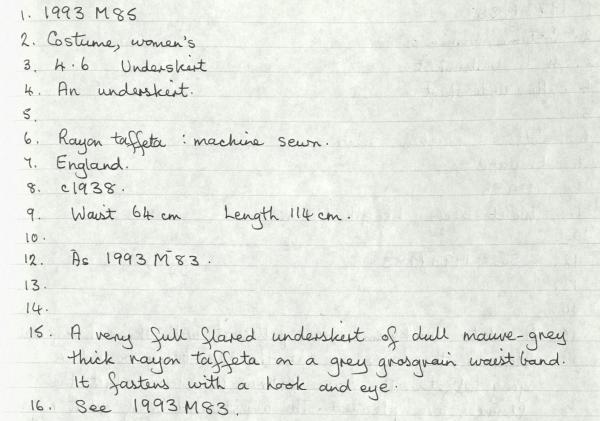 1. 1993 M85
2. Costume, women's
3. 4.6 Underskirt
4. An underskirt.
5.
6. Rayon taffeta : machine sewn.
7. England.
8. c1938.
9. Waist 64 cm Length 114 cm.
10.
12. As 1993 M83.
13.
14.
15. A very full flared underskirt of dull mauve-grey
thick rayon taffeta on a grey grosgrain waist band.
It fastens with a hook and eye.
16. See 1993 M83.